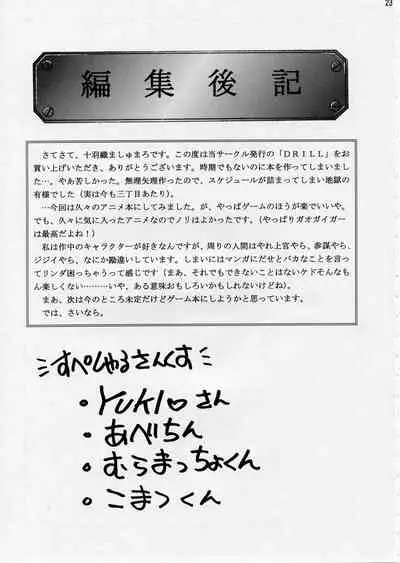 23
編集後記
さてさて、十羽織ましゅまろです。この度は当サークル発行の「DRILL」をお
買い上げいただき、ありがとうございます。時期でもないのに本を作ってしまいまし
た…。やあ苦しかった。無理矢理作ったので、スケジュールが詰まってしまい地獄の
有様でした（実は今も三丁目あたり）。
今回は久々のアニメ本にしてみました。が、やっぱゲームのほうが楽でいいや。
でも、久々に気に入ったアニメなのでノリはよかったです。（やっぱりガオガイガー
は最高だよね！）
私は作中のキャラクターが好きなんですが、周りの人間はやれ上官やら、参謀やら、
ジジイやら、なにか勘違いしています。しまいにはマンガにだせとバカなことを言って
リンダ困っちゃうって感じです（まあ、それでもできないことはないケドそんなもん
楽しくない………いや、ある意味おもしろいかもしれないけどね）。
まあ、次は今のところ未定だけどゲーム本にしようかと思っています。
では、さいなら。
すぺしゃるさんくす
・YUKI♡さん
・あべちん
・むらまっちょくん
・こまつくん